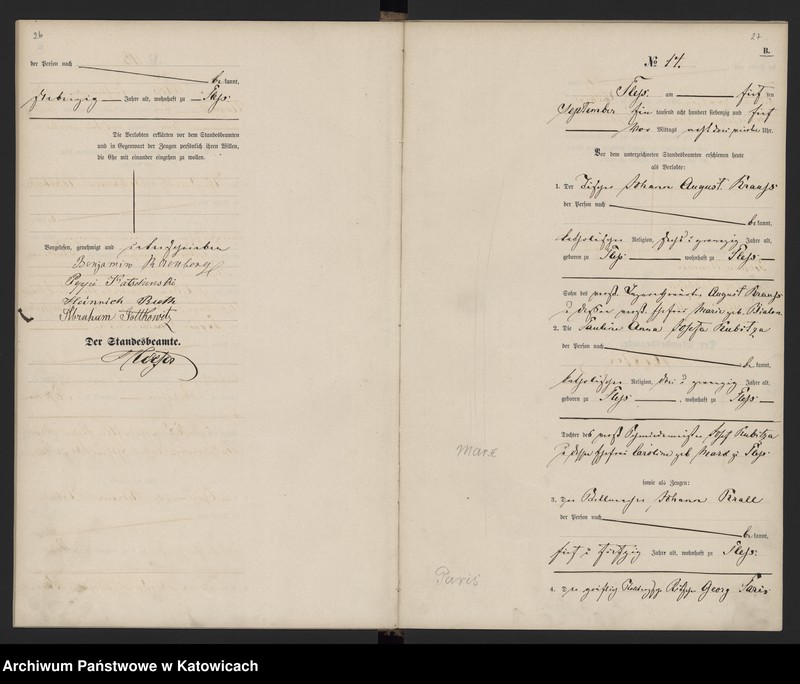 26
der Person nach
bekannt,
siebenzig Jahre alt, wohnhaft zu Pleß
Die Verlobten erklärten vor dem Standesbeamten
und in Gegenwart der Zeugen persönlich ihren Willen,
die Ehe mit einander eingehen zu wollen.
Vorgelesen, genehmigt und unterschrieben
Benjamin
Heinrich
Abraham
Der Standesbeamte.
27
B.
№ 14.
Pleß am fünf ten
September ein tausend acht hundert siebenzig und fünf
Vor Mittags Uhr.
Vor dem unterzeichneten Standesbeamten erschienen heute
als Verlobte:
1. Der Tischler Johann August
der Person nach
bekannt,
katholischer Religion, sechs u zwanzig Jahre alt,
geboren zu Pleß wohnhaft zu Pleß
Sohn des August
u dessen Ehefrau Marie geb.
2. Die Pauline Anna Josefa Kubitza
der Person nach
bekannt,
katholischer Religion, drei u zwanzig Jahre alt,
geboren zu Pleß, wohnhaft zu Pleß
Tochter des Schmiedemeister Josef Kubitza
u dessen Ehefrau Caroline geb Marx zu Pleß
Marx
sowie als Zeugen:
3. Der Johann
der Person nach
bekannt,
fünf u Jahre alt, wohnhaft zu Pleß.
Paris
4. Der Georg Paris
Archiwum Państwowe w Katowicach